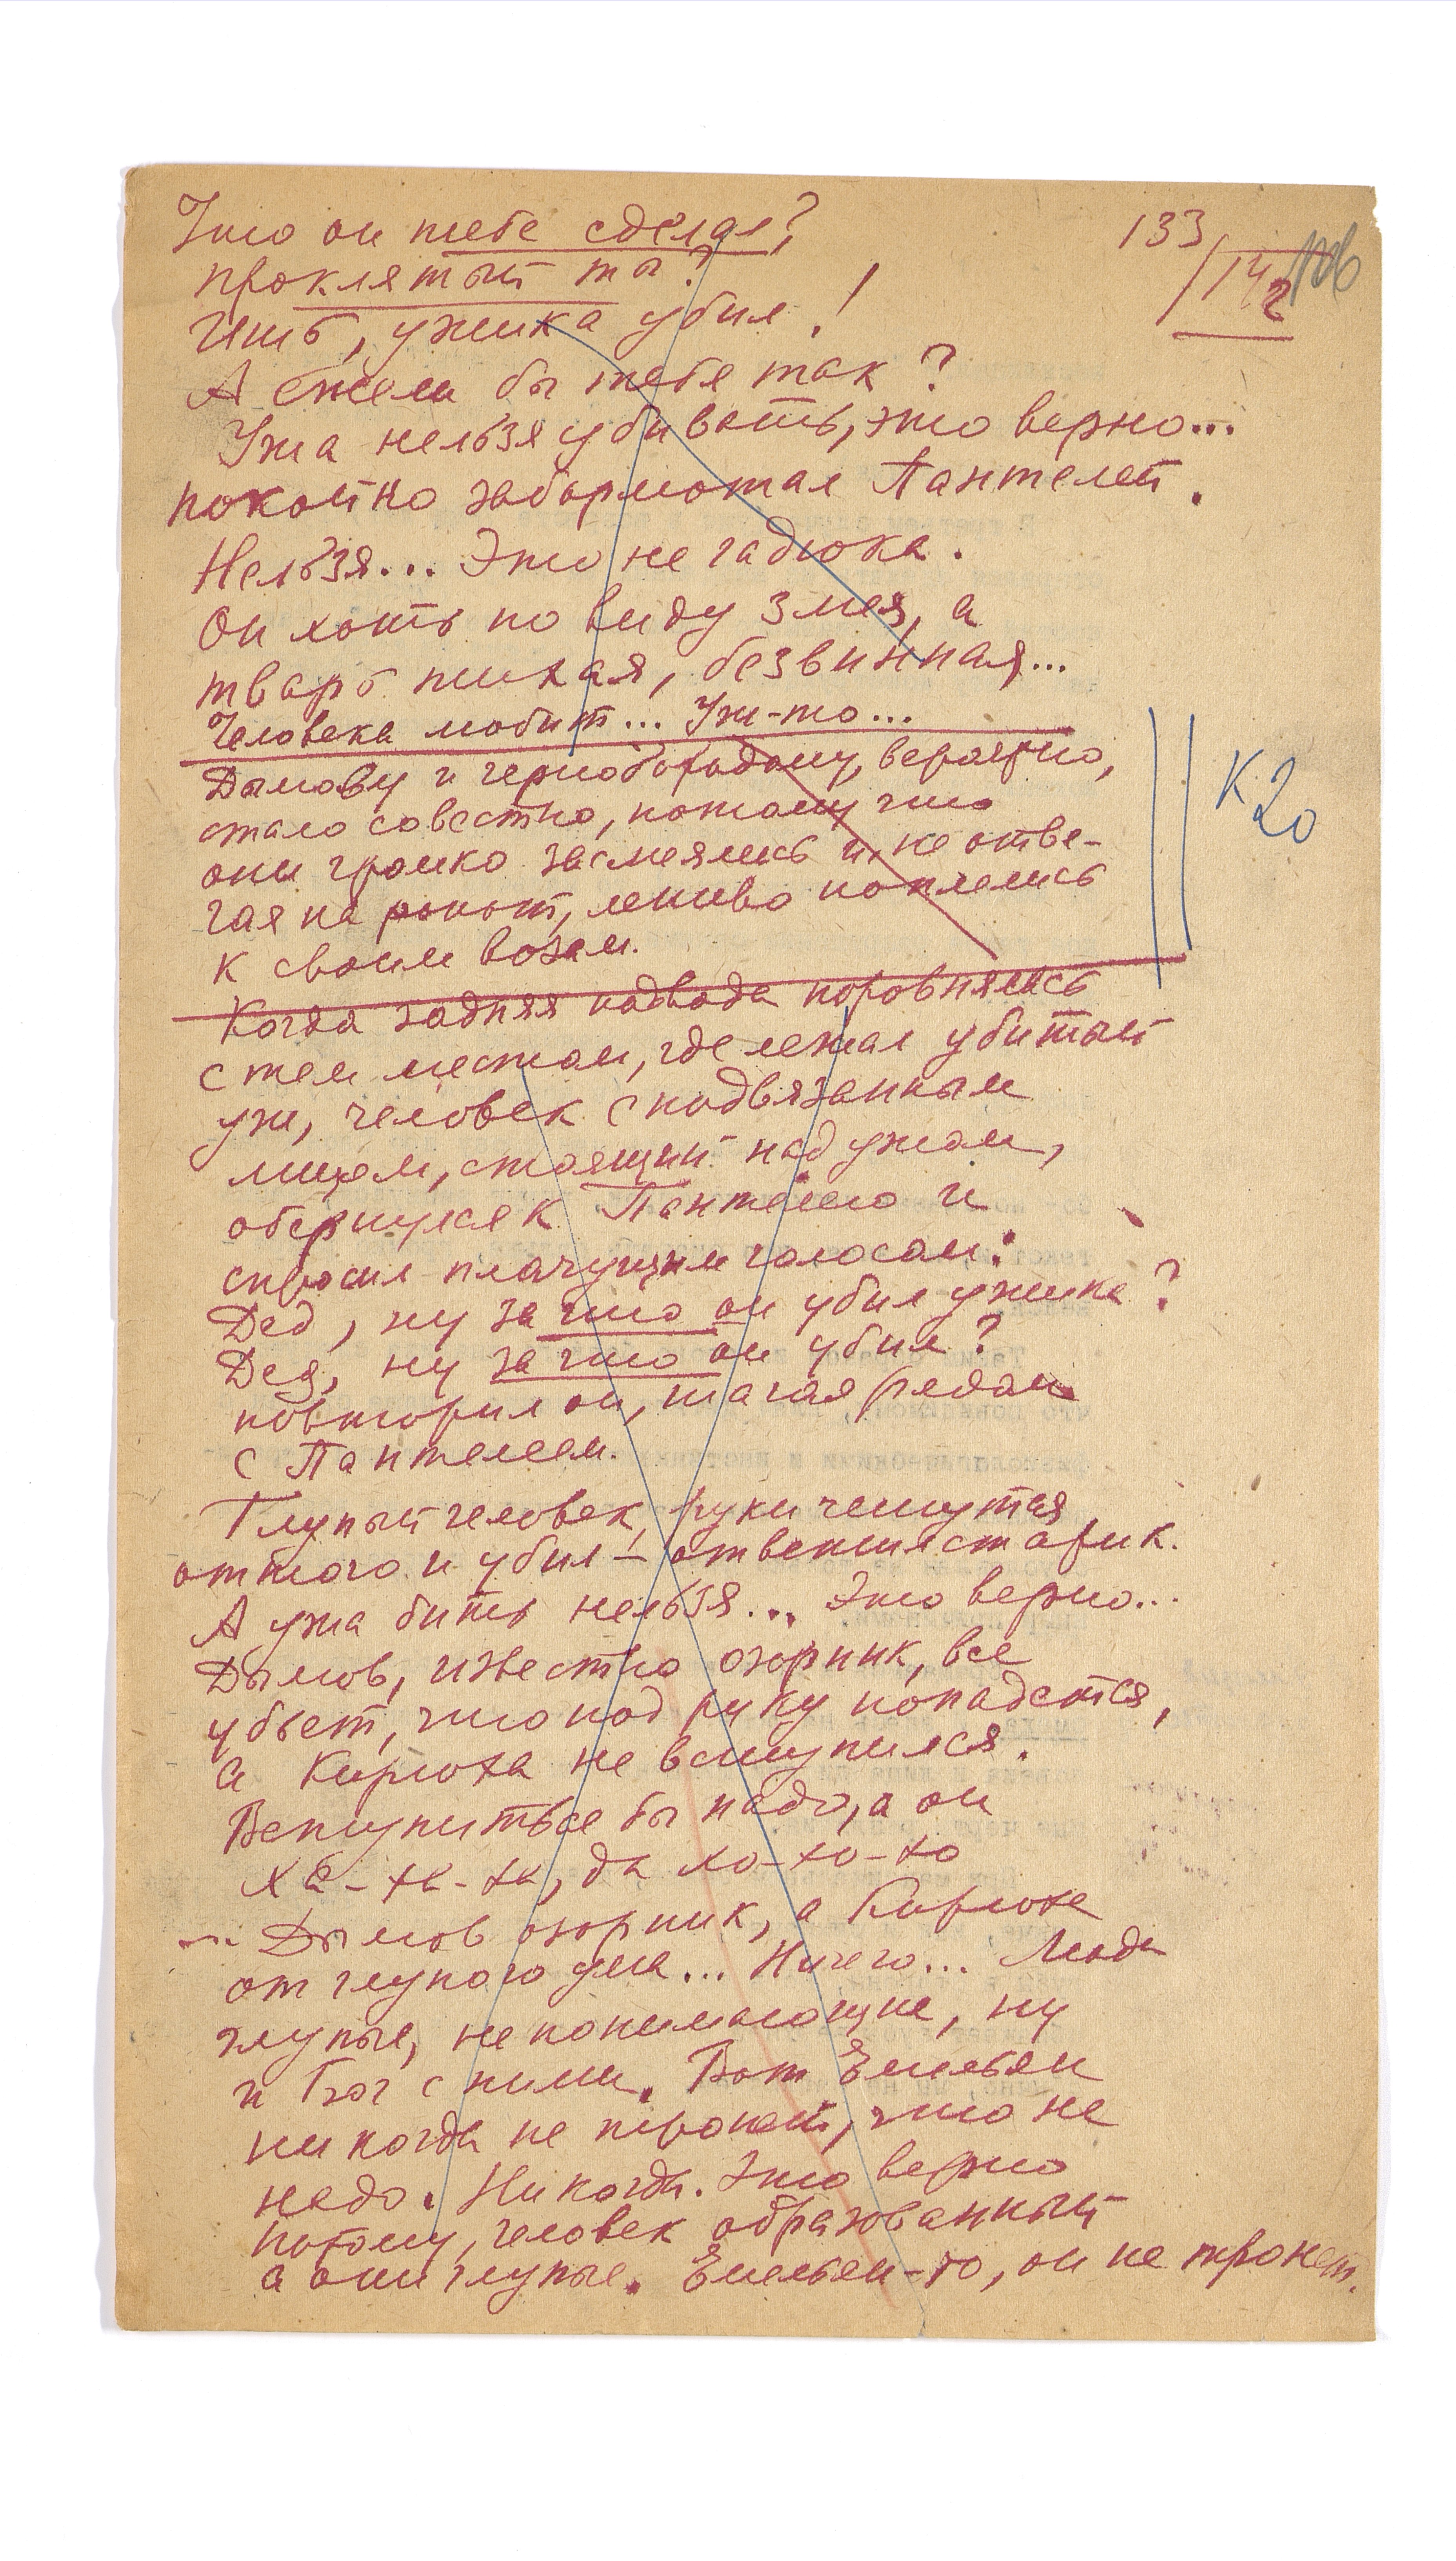 Что он тебе сделал,?
133
проклятый ты?
142
Ишь, ужика убил!
А ежели бы тебя так?
Ужа нельзя убивать, это верно...
покойно забормотал Пантелей.
Нельзя... Это не гадюка.
Он хоть по виду змея, а
тварь тихая, безвинная...
Человека любит... Уж-то...
Дымову и чернобородому, вероятно,
стало совестно, потому что
они громко засмеялись и, не отве-
чая на ропот, лениво поплелись
к своим возам.
К 20
Когда задняя подвода поровнялась
с тем местом, где лежал убитый
уж, человек с подвязанным
лицом, стоящий над ужом,
обернулся к Пантелею и
спросил плачущим голосом:
Дед, ну за что он убил ужика?
Дед, ну за что он убил?
повторил он, шагая рядом
с Пантелеем.
Глупый человек, руки чешутся,
оттого и убил – ответил старик.
А ужа бить нельзя... Это верно...
Дымов, известно озорник, все
убьет, что под руку попадется,
а Кирюха не вступился.
Вступиться бы надо, а он
ха-ха-ха, да хо-хо-хо
Дымов озорник, а Кирюха
от глупого ума... Ничего... Люди
глупые, непонимающие, ну
и Бог с ними. Вот Емельян
никогда не тронет, что не
надо. Никогда. Это верно
потому, человек образованный
а они глупые. Емельян-то, он не тронет.